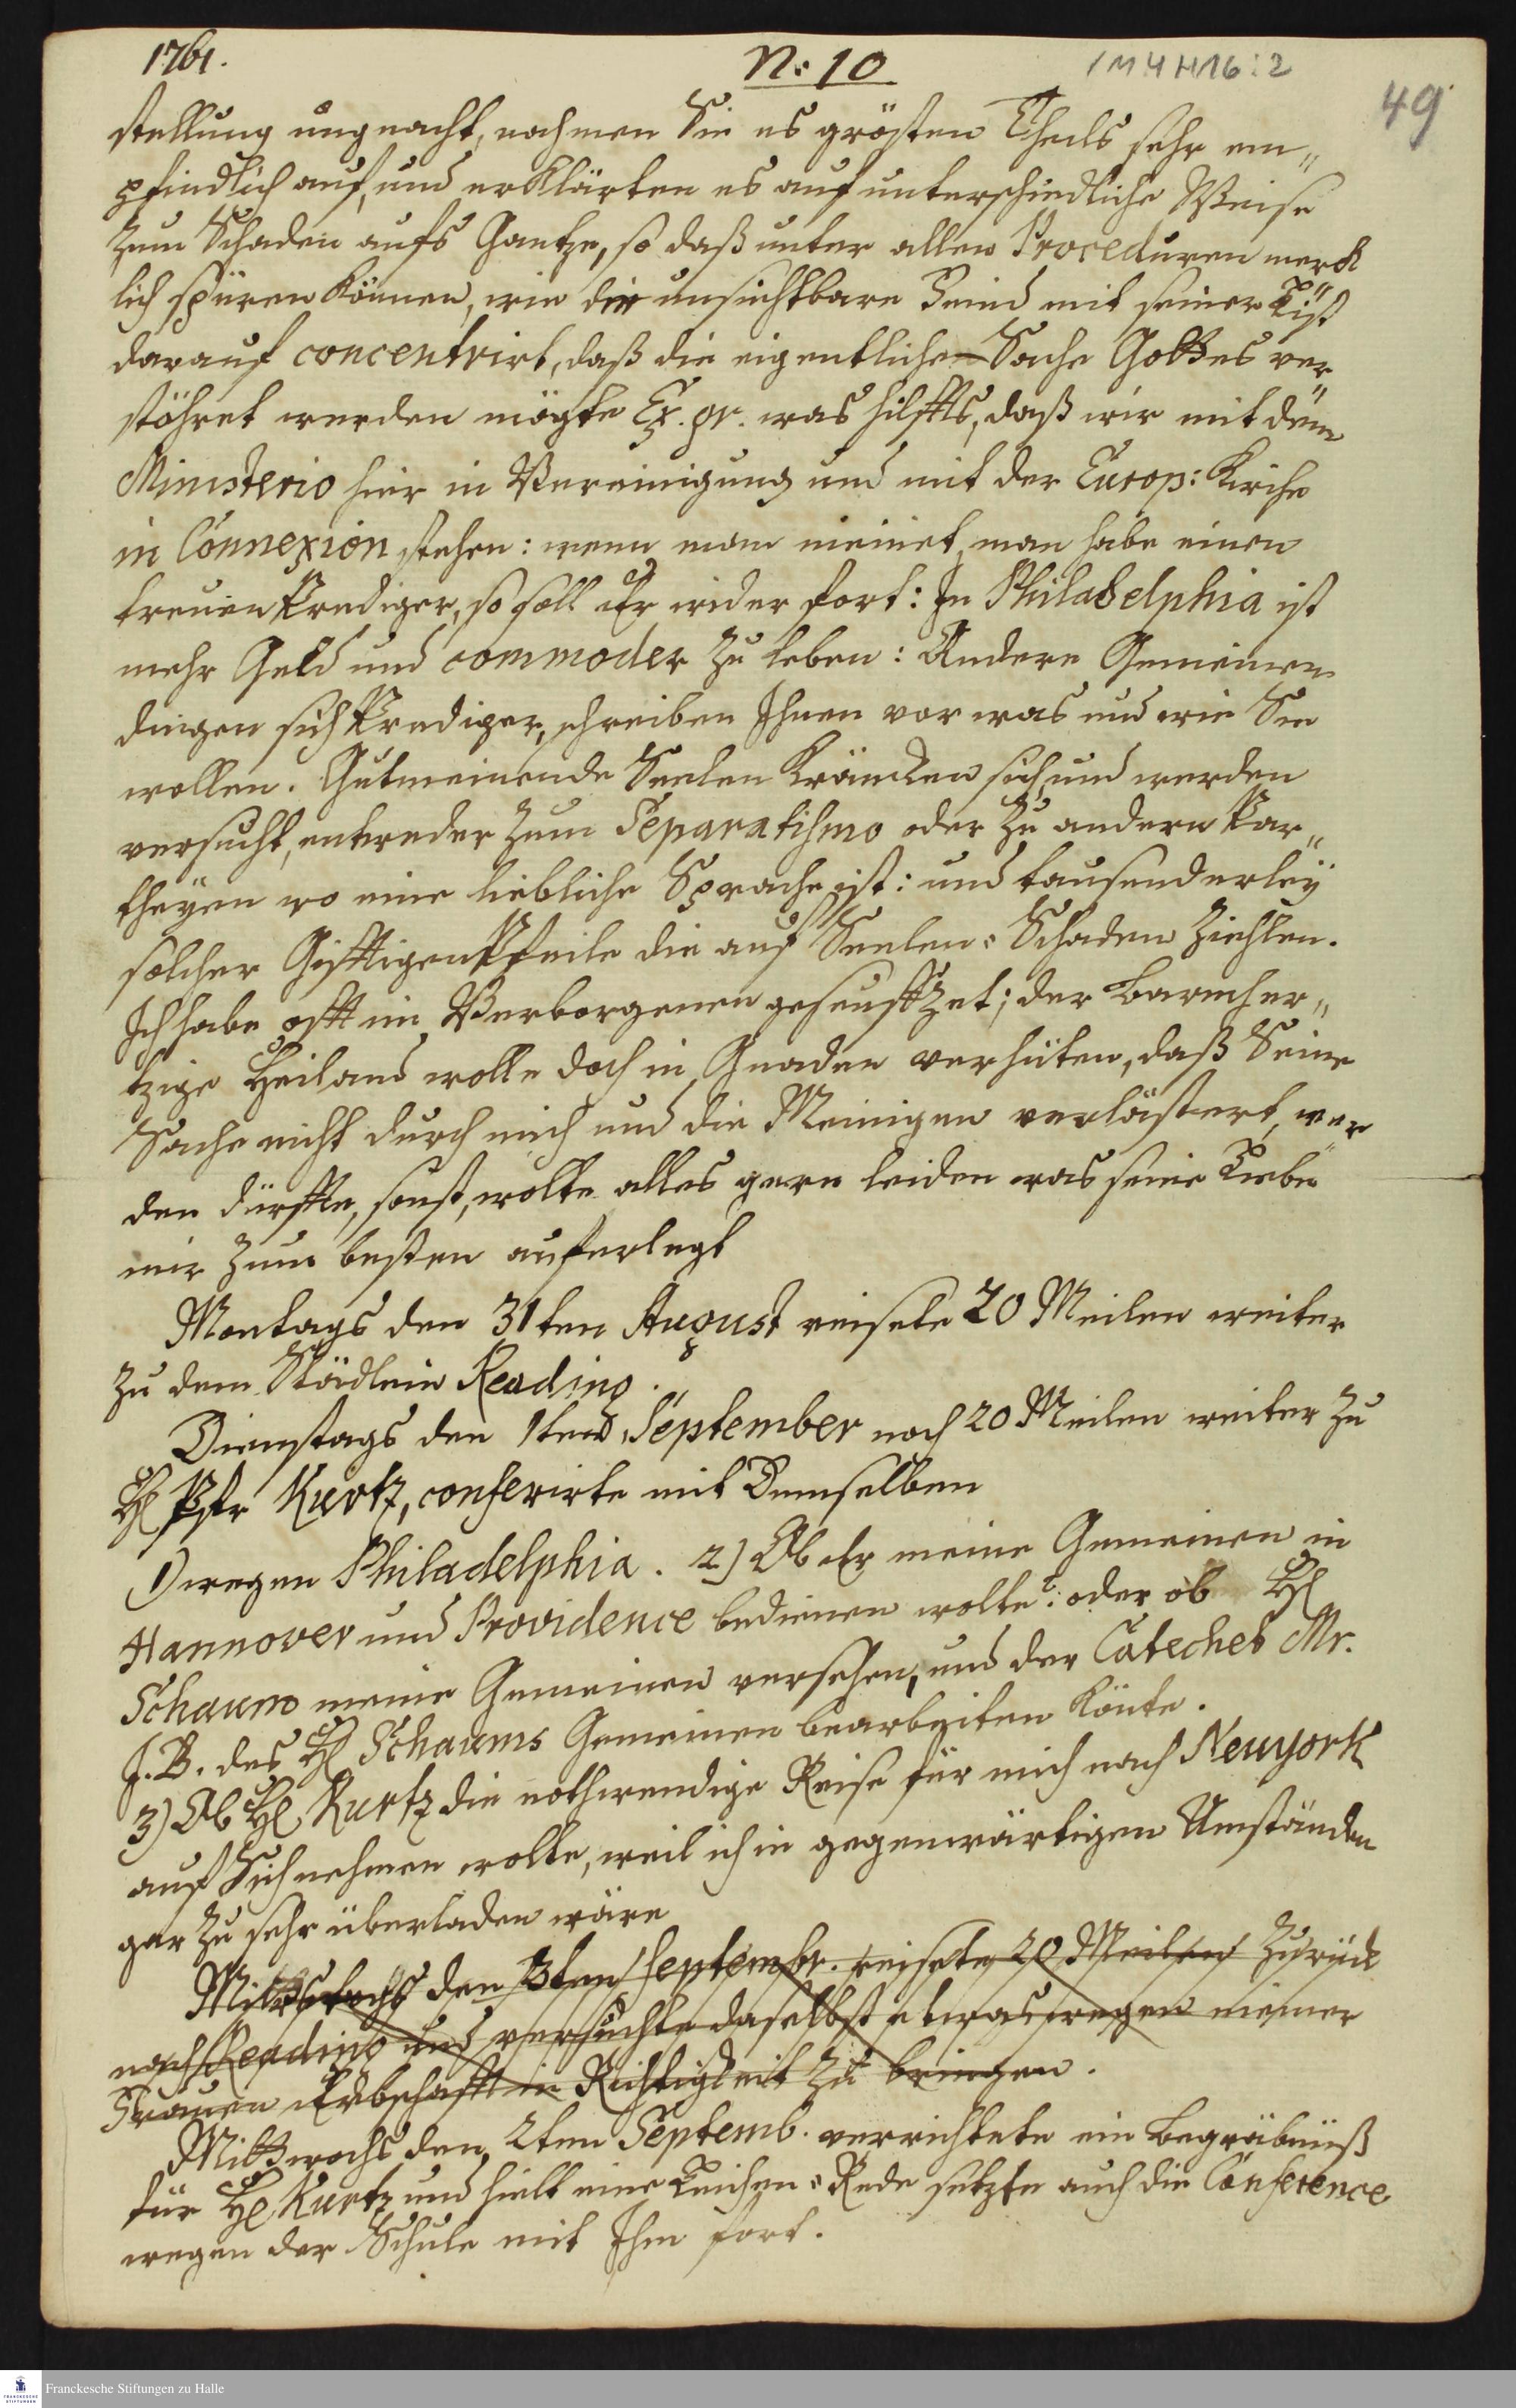 1761.
N: 10
1 M 4 H 16 : 2
49
stellung ungeacht, nahmen Sie es grösten Theils sehr em„
pfindlich auf, und erklärten es auf unterschiedliche Weise
zum Schaden aufs Gantze, so daß unter allen Proceduren merck
lich spüren können, wie der unsichtbare Feind mit seiner List
darauf concentrirt, daß die eigentliche Sache Gottes ver„
stöhret werden mögte Ex. gr. was hilffts, daß wir mit dem
Ministerio hier in Vereinigung und mit der Europ: Kirche
in Connexion stehen: wenn man meinet, man habe einen
treuen Prediger, so soll Er wider fort: In Philadelphia ist
mehr Geld und commoder zu leben: Andere Gemeinen
dingen sich Prediger, schreiben Ihnen vor was und wie Sie
wollen. Gutmeinende Seelen kräncken sich, und werden
versucht, entweder zum Separatismo oder zu andern Par„
theyen wo eine liebliche Sprache ist: und tausenderley
solcher Gifftigen Pfeile die auf Seelen-Schaden ziehlen.
Ich habe offt im Verborgenen geseuffzet; der Barmher„
tzige Heiland wolle doch in Gnaden verhüten, daß Seine
Sache nicht durch mich und die Meinigen verlästert wer„
den dürffte, sonst wolte alles gern leiden was seine Liebe
mir zum besten auferlegt
Montags den 31ten August reisete 20 Meilen weiter
zu dem Städlein Reading.
Dienstags den 1ten September noch 20 Meilen weiter zu
H Pfr Kurtz, conferirte mit Demselben
1) wegen Philadelphia. 2) Ob Er meine Gemeinen in
Hannover und Providence bedienen wolte? oder ob H
Schaum meine Gemeinen versehen, und der Catechet Mr.
J. B. des H Schaums Gemeinen bearbeiten könte.
3) Ob H Kurtz die nothwendige Reise für mich nach Newyork
auf Sich nehmen wolte, weil ich in gegenwärtigen Umständen
gar zu sehr überladen wäre
Mittwochs den 3ten Septembr. reisete 20 Meilen zurück
nach Reading und versuchte daselbst etwas wegen meiner
Frauen Erbschafft in Richtigkeit zu bringen.
Mittwochs den 2ten Septemb. verrichtete ein Begräbnüß
für H Kurtz und hielt eine Leichen-Rede setzte auch die Conference
wegen der Schule mit Ihm fort.
FRANCKESCHE STIFTUNGEN
Franckesche Stiftungen zu Halle